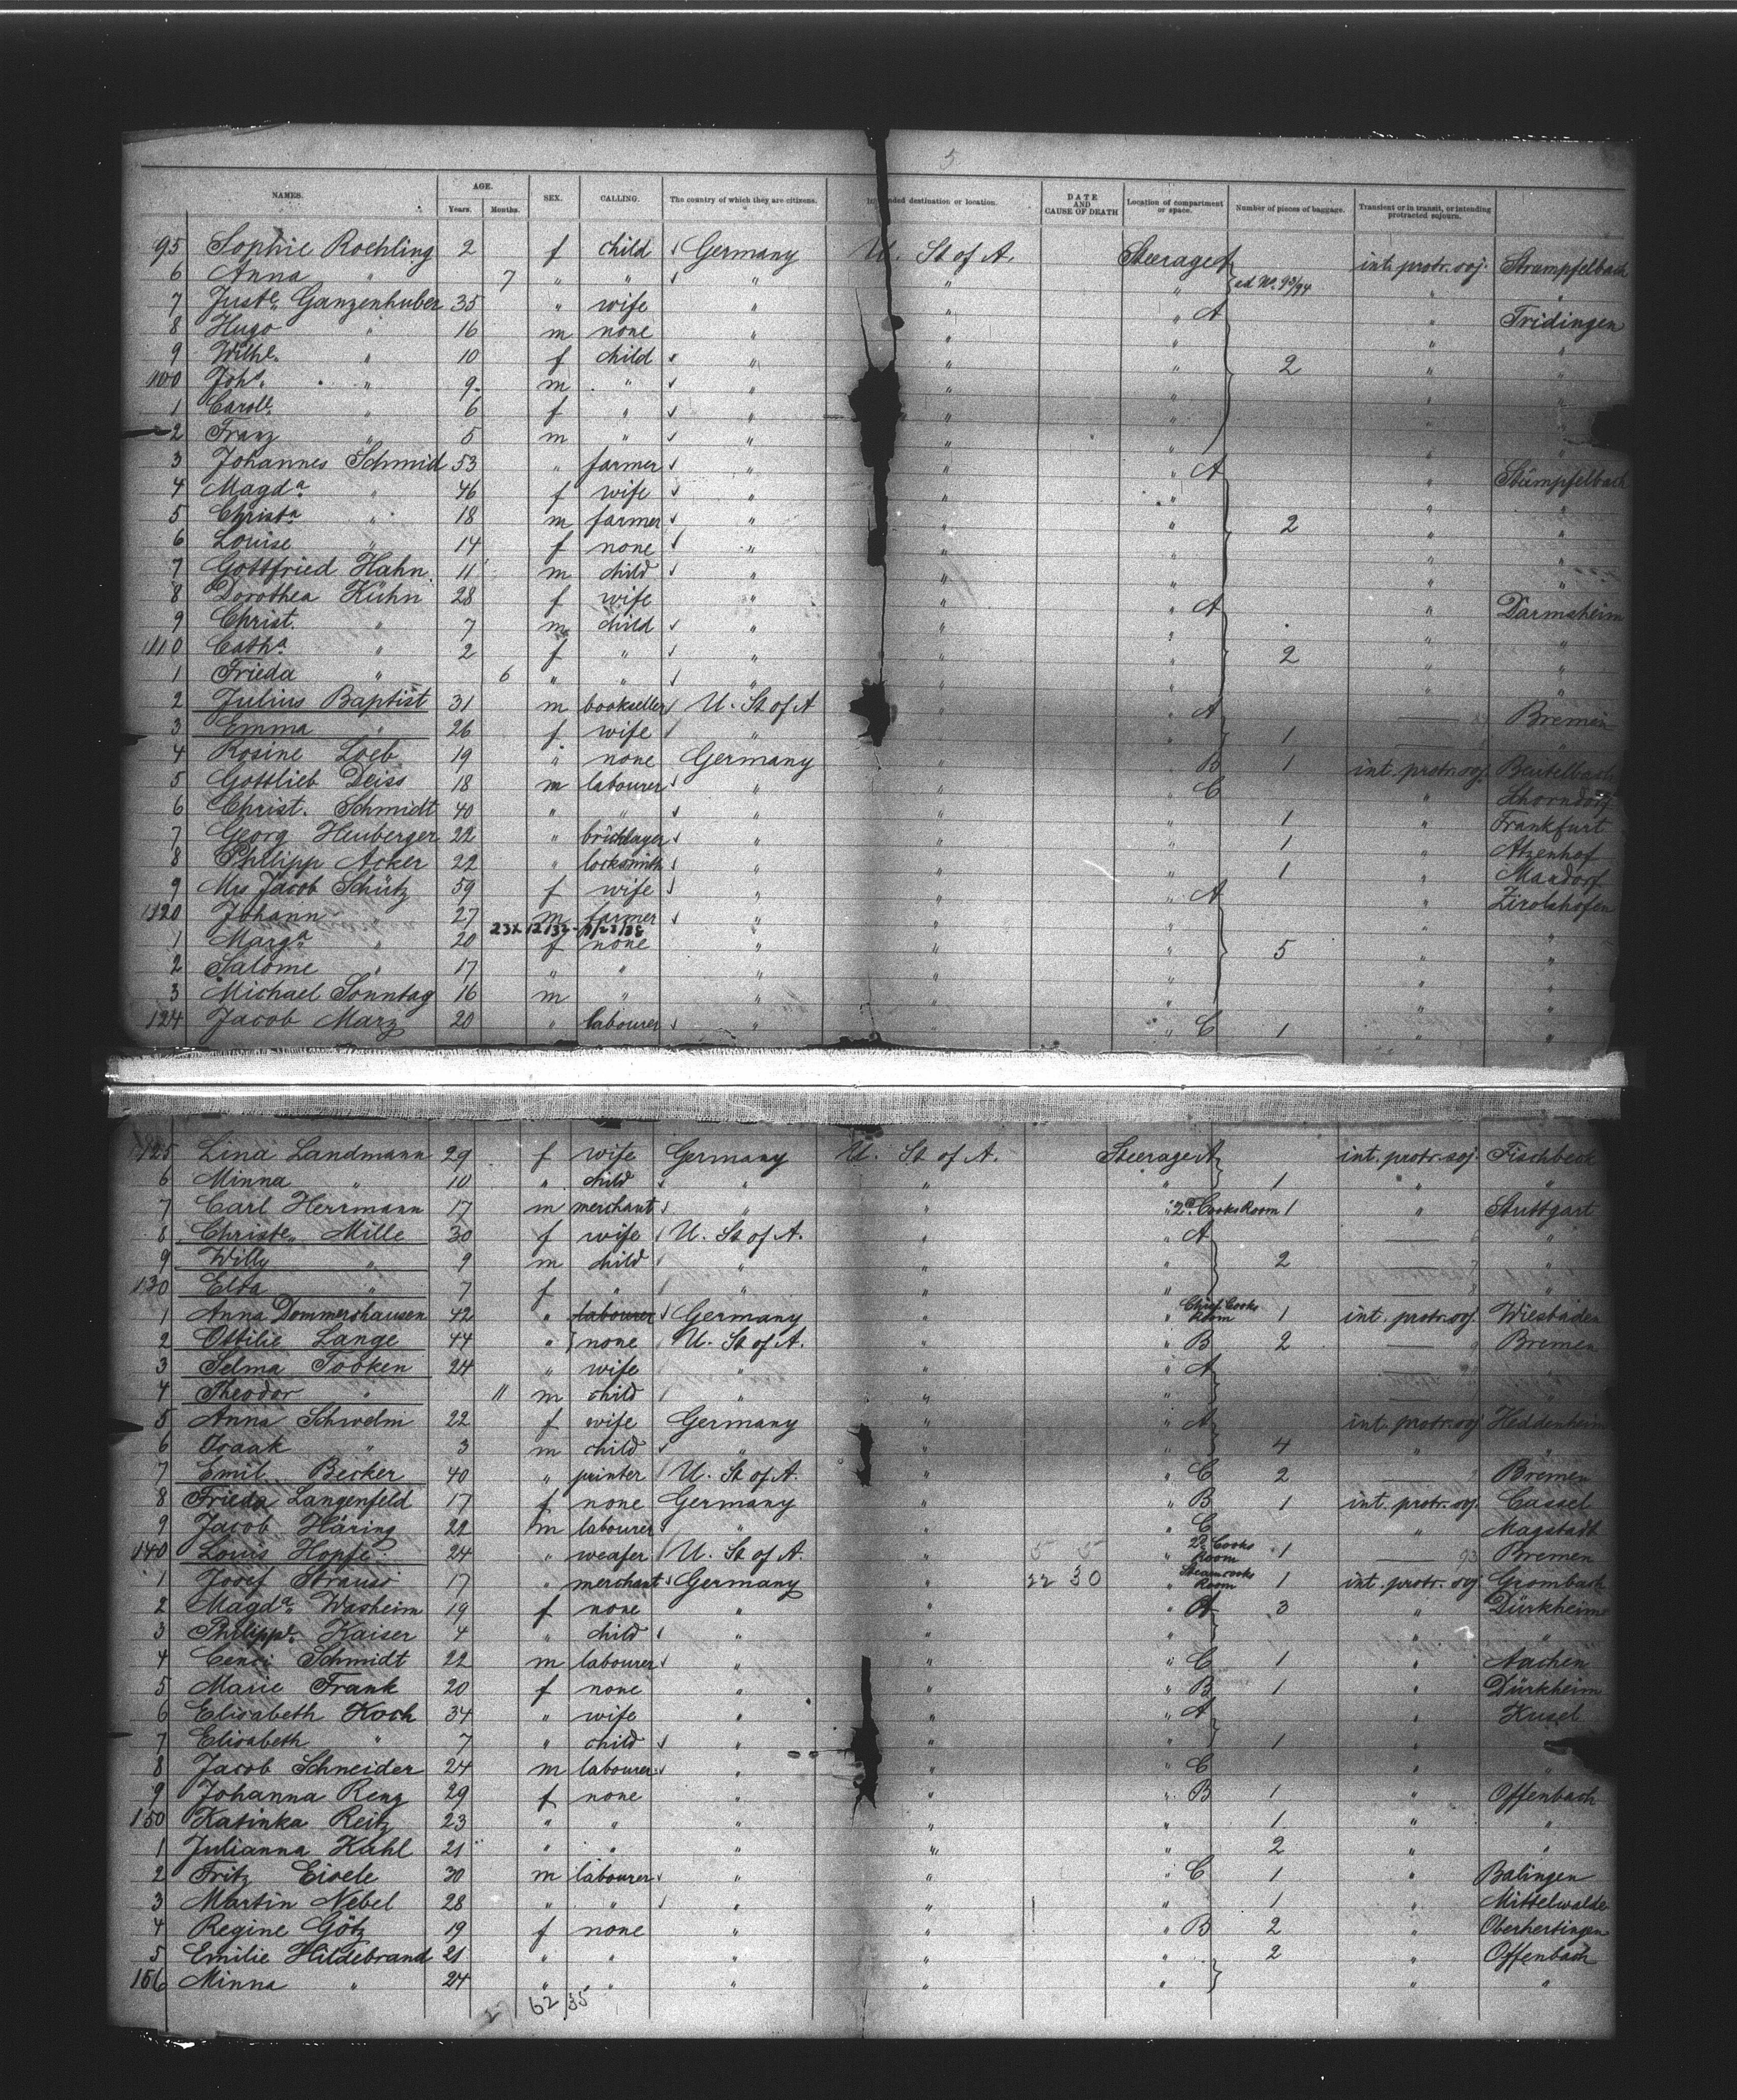 5
NAMES. AGE. Years. Months. SEX. CALLING. The country of which they are citizens. nded destination or location. DATE AND CAUSE OF DEATH Location of compartment or space. Number of pieces of baggage. Transient or in transit, or intending protracted sojourn.
95 Sophie Roehling 2 f child Germany U. St of A. Steerage A int. protr. soj. Strumpfelbach
6 Anna " 7 " " " " " ad No. 93/94 " "
7 Juste. Ganzenhuber 35 " wife " " " A " Fridingen
8 Hugo " 16 m none " " " " "
9 Wilhe. " 10 f child " " " 2 " "
100 Johs. " 9 m " " " " " "
1 Carole. " 6 f " " " " " "
2 Franz " 5 m " " " " " "
3 Johannes Schmid 53 " farmer " " " A " Stümpfelbach
4 Magda. " 46 f wife " " " " "
5 Christn. " 18 m farmer " " " 2 " "
6 Louise " 14 f none " " " " "
7 Gottfried Hahn 11 m child " " " " "
8 Dorothea Kühn 28 f wife " " " A " Darmsheim
9 Christ. " 7 m child " " " " "
110 Catha. " 2 f " " " " 2 " "
1 Frieda " 6 " " " " " " "
2 Julius Baptist 31 m bookseller U. St of A " " A Bremen
3 Emma " 26 f wife " " " 1 "
4 Rosine Loeb 19 " none Germany " B 1 int. protr. soj. Beutelbach
5 Gottlieb Deiss 18 m labourer " " " C " Schorndorf
6 Christ. Schmidt 40 " " " " " 1 " Frankfurt
7 Georg Heuberger 22 " bricklayer " " " 1 " Atzenhof
8 Philipp Acker 22 " locksmith " " " 1 " Mardorf
9 Mrs Jacob Schütz 59 f wife " " " A " Zirolshofen
1120 Johann " 27 m farmer " " " " "
1 Marga. " 20 f none " " " 5 " "
2 Salome " 17 " " " " " " "
3 Michael Sonntag 16 m " " " " " "
124 Jacob Marz 20 " labourer " " " C 1 " "
125 Lina Landmann 29 f wife Germany U. St of A. Steerage A int. protr. soj. Fischbeck
6 Minna " 10 " child " " " 1 " "
7 Carl Herrmann 17 m merchant " " " 2d. Cooks Room 1 " Stuttgart
8 Christe. Mille 30 f wife U. St of A. " " A "
9 Willy " 9 m child " " " 2 "
130 Elsa " 7 f " " " " "
1 Anna Dommershausen 42 " labourer Germany " " Chief Cooks Room 1 int. protr. soj. Wiesbaden
2 Ottilie Lange 44 " none U. St of A. " " B 2 Bremen
3 Selma Tobken 24 " wife " " " A "
4 Theodor " 11 m child " " " "
5 Anna Schwelm 22 f wife Germany " " A int. protr. soj. Heddenheim
6 Isaak " 3 m child " " " 4 " "
7 Emil Becker 40 " printer U. St of A. " " C 2 Bremen
8 Frieda Langenfeld 17 f none Germany " " B 1 int. protr. soj. Cassel
9 Jacob Häring 22 m labourer " " " C " Magstadt
140 Louis Hopfe 24 " weafer U. St of A. " " 2d. Cooks Room 1 93 Bremen
1 Josef Strauss 17 " merchant Germany " 22 30 Steamcooks Room 1 int. protr. soj. Grombach
2 Magda. Washeim 19 f none " " " A 3 " Dürkheim
3 Philippe. Kaiser 4 " child " " " " "
4 Cenci Schmidt 22 m labourer " " " C 1 " Aachen
5 Marie Frank 20 f none " " " B 1 " Dürkheim
6 Elisabeth Koch 34 " wife " " " A " Kusel
7 Elisabeth " 7 " child " " " 1 " "
8 Jacob Schneider 24 m labourer " " " C " "
9 Johanna Renz 29 f none " " " B 1 " Offenbach
150 Katinka Reitz 23 " " " " " 1 " "
1 Julianna Kahl 21 " " " " " 2 " "
2 Fritz Eisele 30 m labourer " " " C 1 " Balingen
3 Martin Nebel 28 " " " " " 1 " Mittelwalde
4 Regine Götz 19 f none " " " B 2 " Oberhertingen
5 Emilie Hildebrand 21 " " " " " 2 " Offenbach
156 Minna " 24 " " " " " " "
62 35